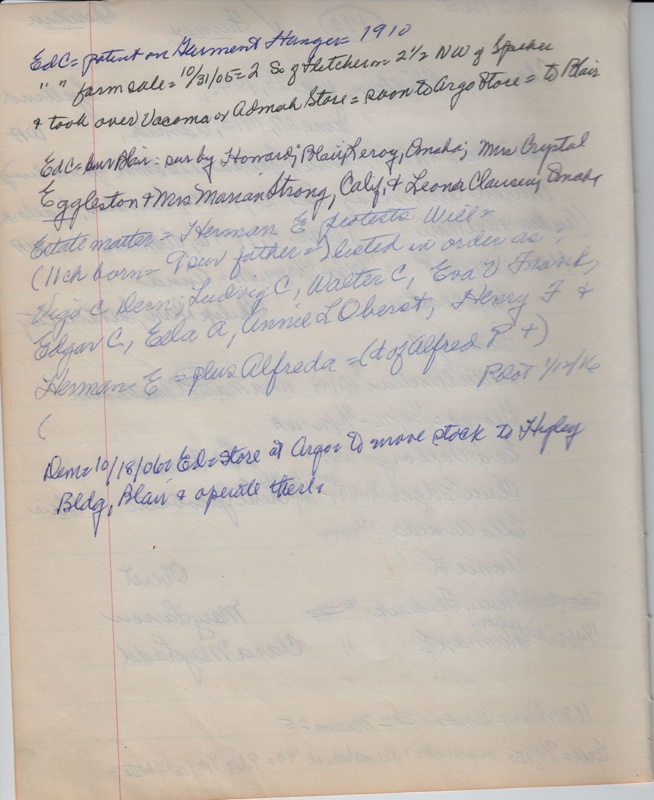 EdC = patent on Garment Hanger = 1910
" " farm sale = 10/31/05 = 2 So of Fletcher = 2 1/2 NW of Spiker
& took over Vacoma or Admah Store = soon to Argo Store = to Blair
EdC = bur Blair = sur by Howard, Blair, Leroy, Omaha; Mrs Crystal
Eggleston & Mrs Marian Strong, Calif, & Leona Clausen, Omaha
Estate matter = Herman E protests Will =
(11 ch born = 9 sur father =) listed in order as,
Vigo C, Dem, Ludvig C, Walter C, Eva V Frank,
Edgar C, Edla A, Annie L Oberst, Henry F &
Herman E = plus Alfreda = (d of Alfred P +)
(
Pilot 1/12/16
Dem = 10/18/06 = Ed = store at Argo = to move stock to Higley
Bldg, Blair & operate there.